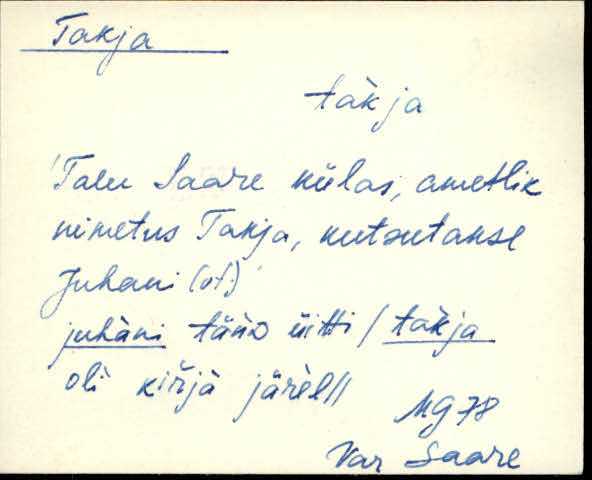 Takja
tàkja
'Talu Saare külas, ametlik
nimetus Takja, kutsutakse
Juhani (of.)'
juhàni täńD üitti / tàkja
oli kiŕjä järèl//
MG 78
Var Saare